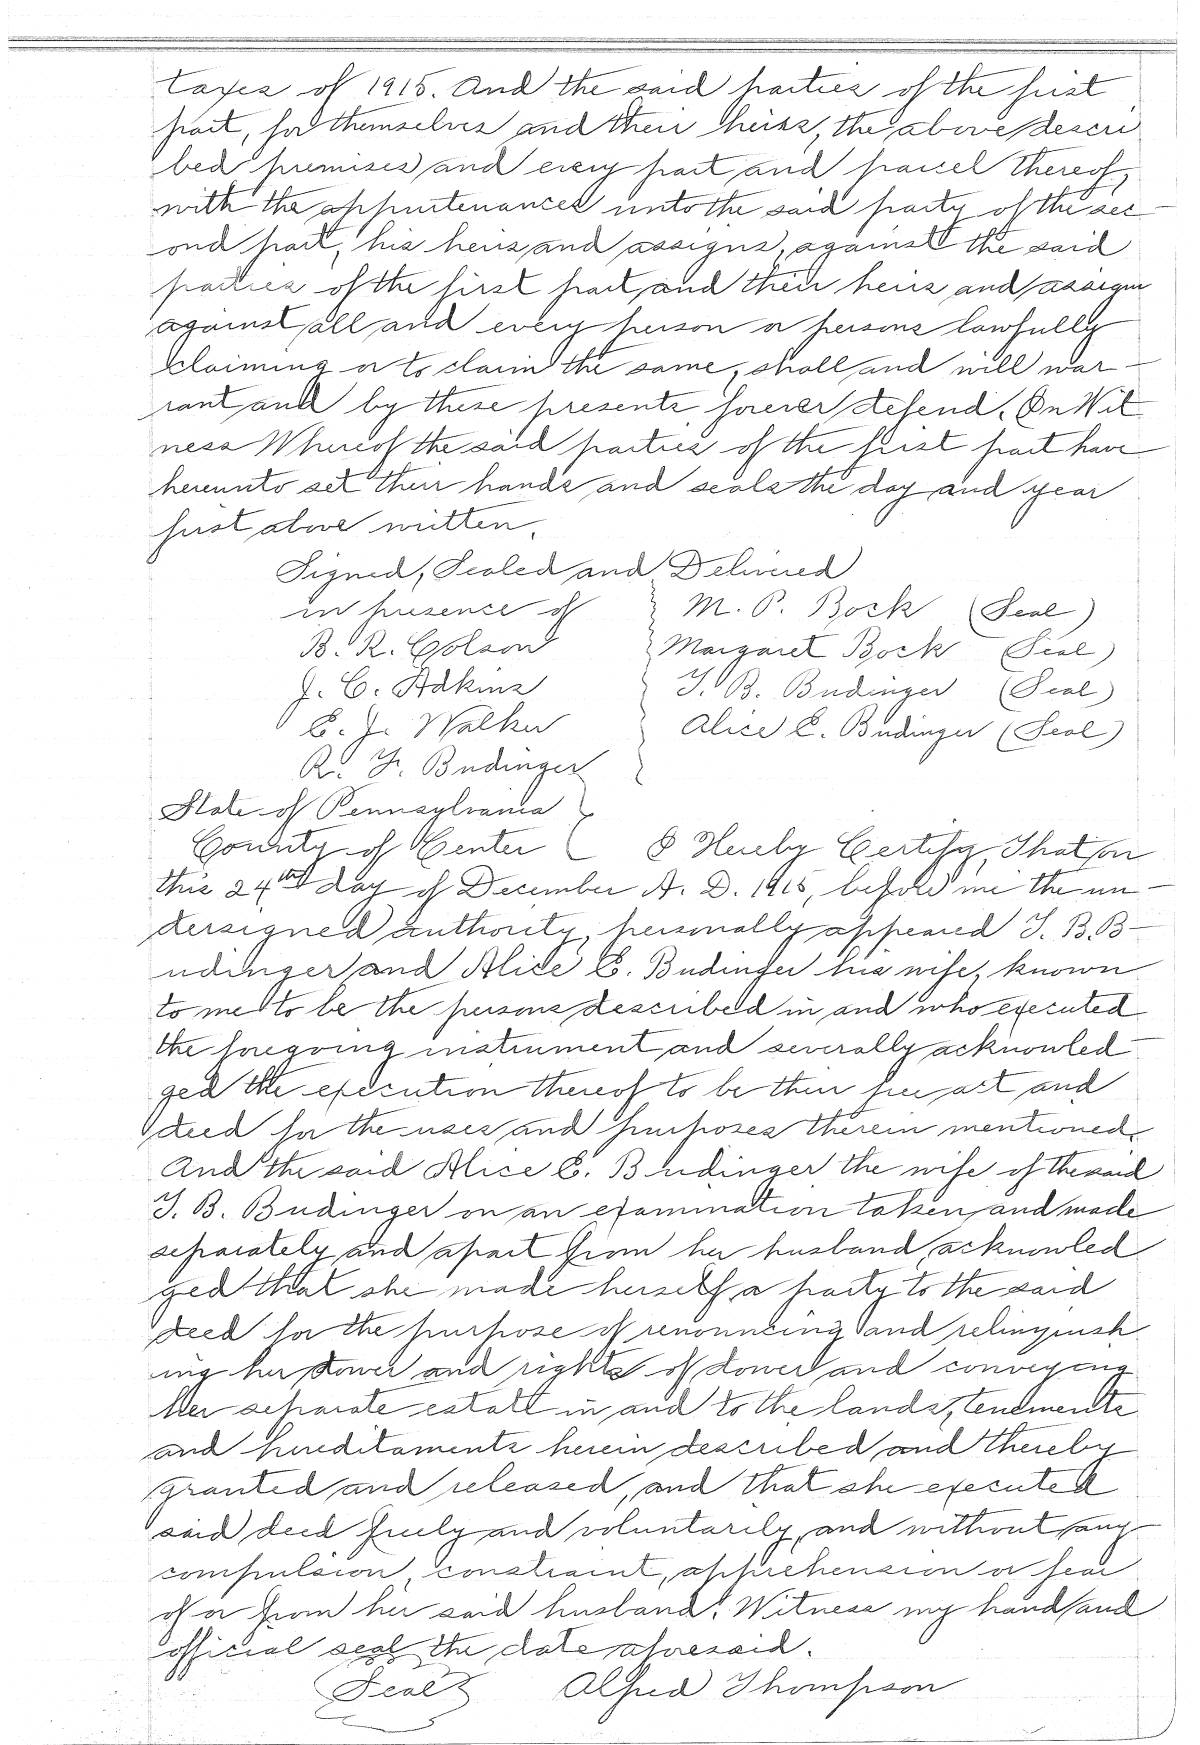 taxes of 1915. And the said parties of the first
part, for themselves and their heirs, the above descri
bed premises and every part and parcel thereof,
with the appurtenances unto the said party of the sec-
ond part, his heirs and assigns, against the said
parties of the first part, and their heirs and assigns
against all and every person or persons lawfully
claiming or to claim the same, shall and will war-
rant and by these presents forever defend. In Wit
ness Whereof the said parties of the first part have
hereunto set their hands and seals the day and year
first above written.
Signed, Sealed and Delivered
in presence of M. P. Bock (Seal)
B. R. Colson Margaret Bock (Seal)
J. C. Adkins T. B. Budinger (Seal)
E. J. Walker Alice E. Budinger (Seal)
R. F. Budinger
State of Pennsylvania
County of Center I Hereby Certify, That on
this 24th day of December A. D. 1915, before me the un-
dersigned authority, personally appeared T. B. B-
udinger and Alice E. Budinger his wife, known
to me to be the persons described in and who executed
the foregoing instrument and severally acknowled-
ged the execution thereof to be their free act and
deed for the uses and purposes therein mentioned.
And the said Alice E. Budinger the wife of the said
T. B. Budinger on an examination taken and made
separately and apart from her husband, acknowled
ged that she made herself a party to the said
deed for the purpose of renouncing and relinquish
ing her dower and rights of dower and conveying
her separate estate in and to the lands, tenements
and hereditaments herein described and thereby
granted and released, and that she executed
said deed freely and voluntarily, and without any
compulsion, constraint, apprehension or fear
of or from her said husband. Witness my hand and
official seal the date aforesaid.
Seal Alfred Thompson